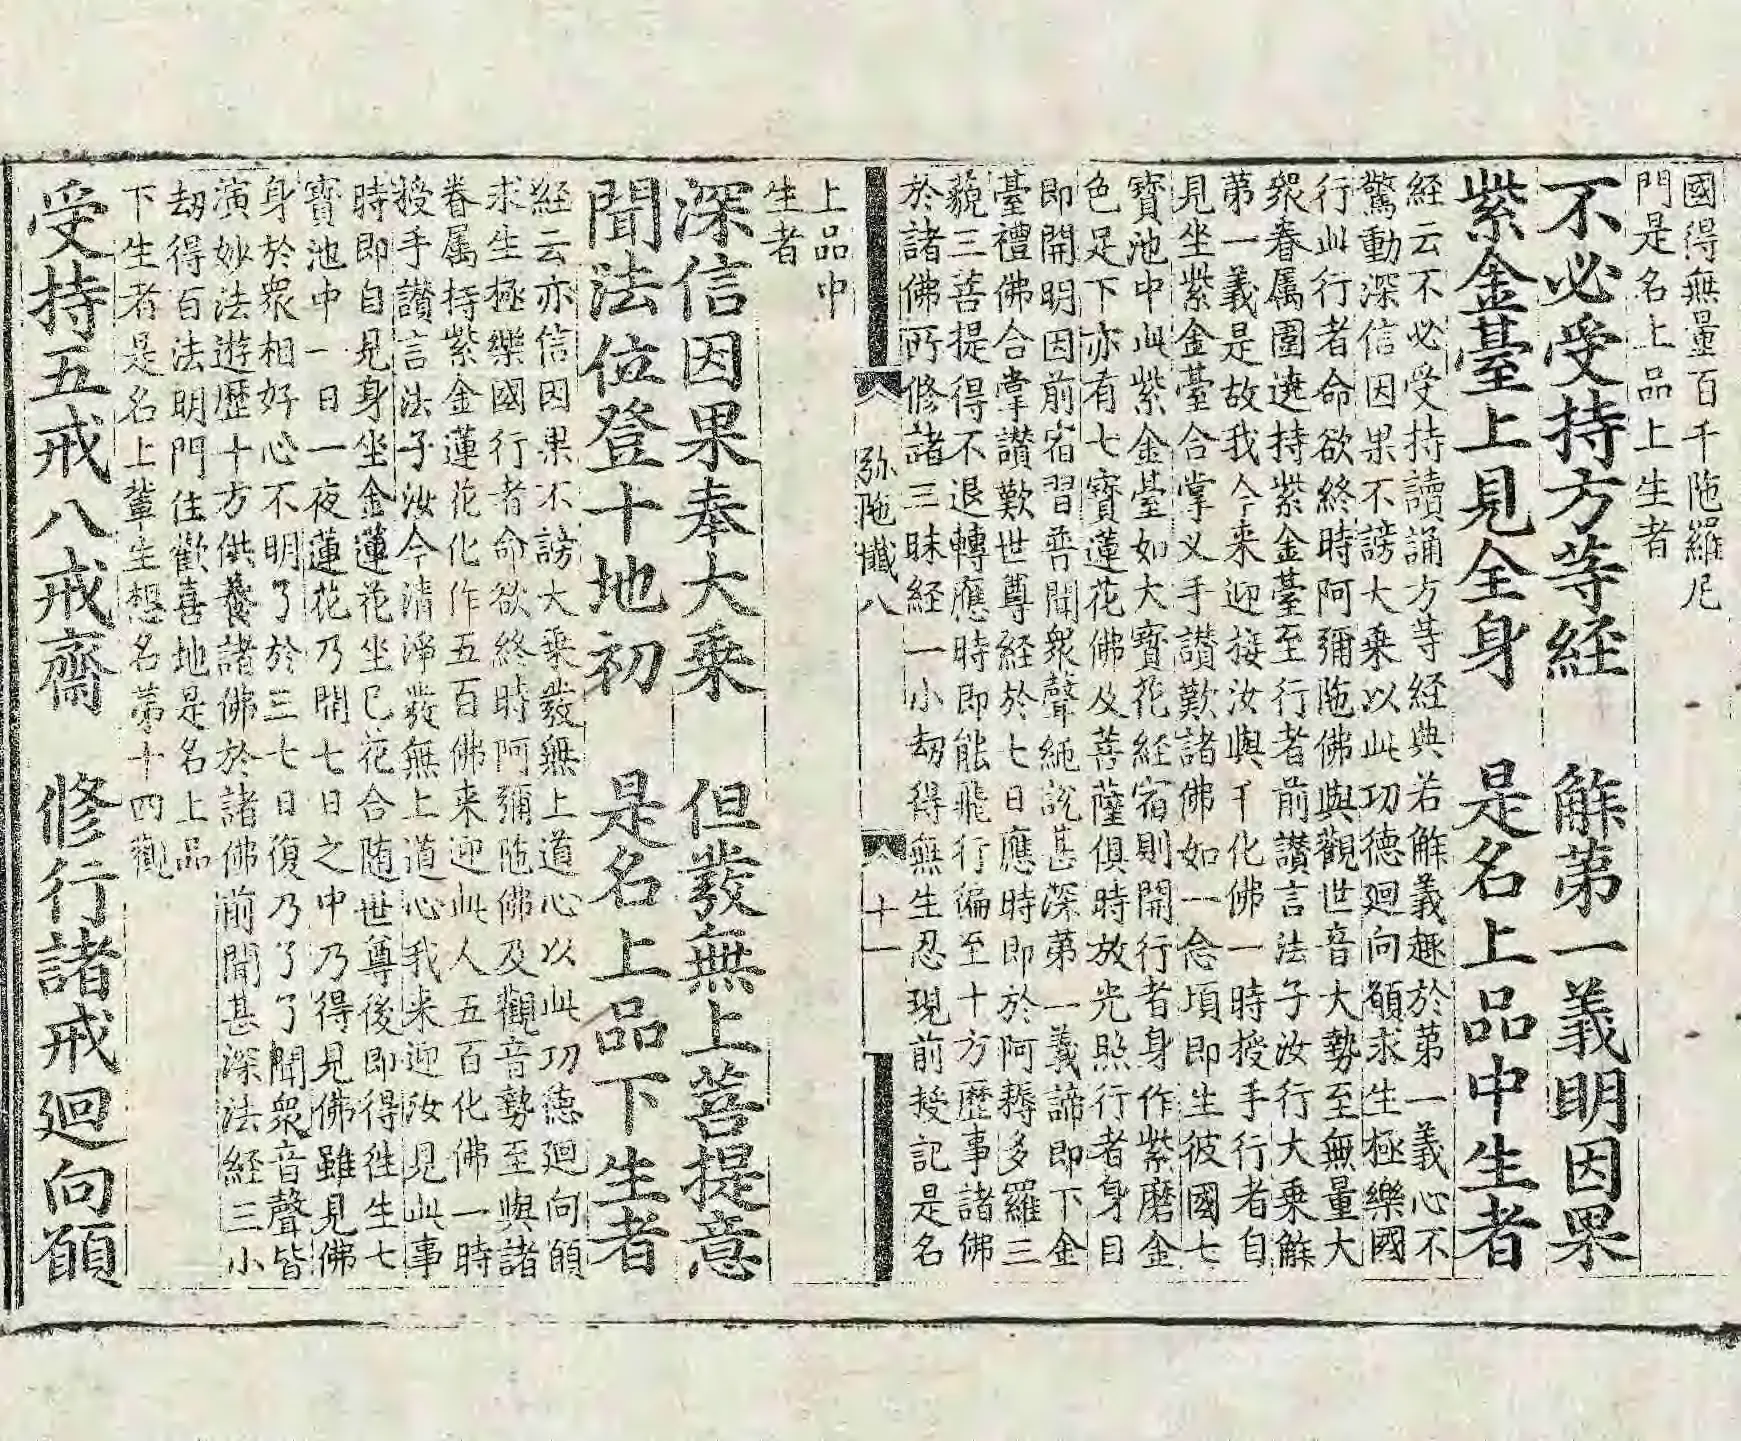 國得無量百千陁羅尼
門是名上品上生者
不必受持方等経　解第一義明因果
紫金臺上見全身　是名上品中生者
経云不必受持讀誦方等経典若解義趣於第一義心不
驚動深信因果不謗大乗以此功德廻向願求生極樂國
行此行者命欲終時阿彌陁佛與觀世音大勢至無量大
衆眷属圍遶持紫金臺至行者前讃言法子汝行大乗解
第一義是故我今来迎接汝與千化佛一時授手行者自
見坐紫金臺合掌叉手讃歎諸佛如一念頃即生彼國七
寳池中此紫金臺如大寳花経宿則開行者身作紫磨金
色足下亦有七寳蓮花佛及菩薩俱時放光照行者身目
即開明因前宿習普聞衆聲純說甚深第一義諦即下金
臺禮佛合掌讃歎世尊経於七日應時即於阿耨多羅三
藐三菩提得不退轉應時即能飛行徧至十方歷事諸佛
於諸佛所修諸三昧経一小劫得無生忍現前授記是名
弥陁懺八　十一
上品中
生者
深信因果奉大乗　但發無上菩提意
聞法位登十地初　是名上品下生者
経云亦信因果不謗大乗發無上道心以此功德廻向願
求生極樂國行者命欲終時阿彌陁佛及觀音勢至與諸
眷属持紫金蓮花化作五百佛来迎此人五百化佛一時
授手讃言法子汝今清淨發無上道心我来迎汝見此事
時即自見身坐金蓮花坐已花合随世尊後即得徃生七
寳池中一日一夜蓮花乃開七日之中乃得見佛雖見佛
身於衆相好心不明了於三七日復乃了了聞衆音聲皆
演妙法遊歷十方供養諸佛於諸佛前聞甚深法経三小
劫得百法明門住歡喜地是名上品
下生者是名上軰生想名第十四觀
受持五戒八戒齋　修行諸戒廻向願